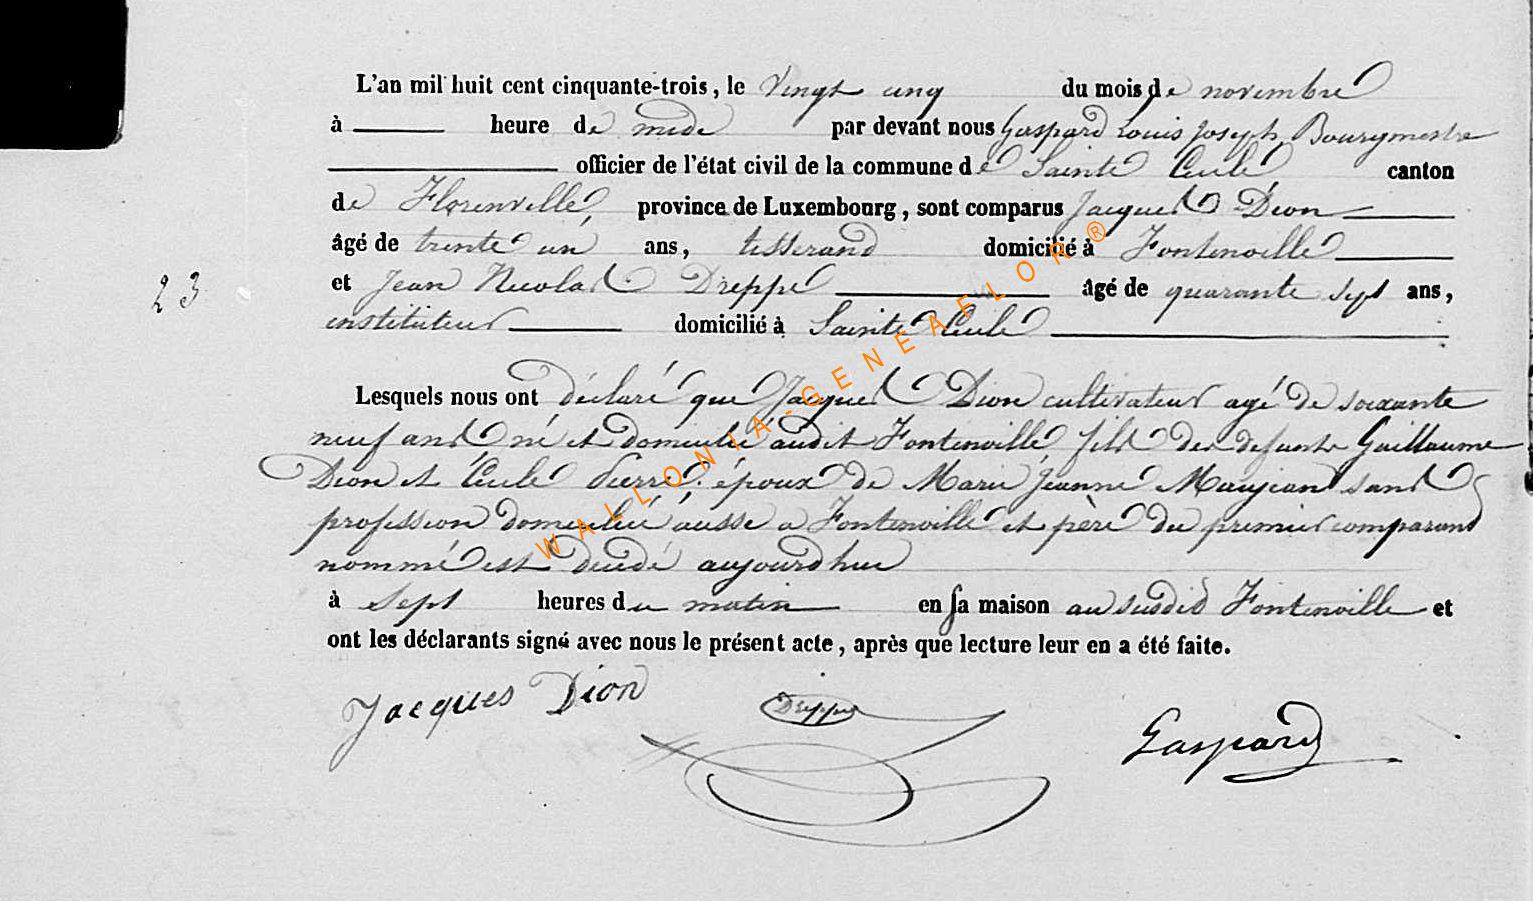 L'an mil huit cent cinquante-trois, le vingt cinq du mois de novembre
à heure de midi par devant nous Gaspard Louis Joseph, Bourgmestre
officier de l'état civil de la commune de Sainte Cecile canton
de Florenville, province de Luxembourg, sont comparus Jacques Dion
âgé de trente un ans, tisserand domicilié à Fontenoille
et Jean Nicolas Dreppe âgé de quarante sept ans,
23
instituteur domicilié à Sainte Cecile
Lesquels nous ont déclaré que Jacques Dion cultivateur agé de soixante
neuf ans né et domicilié audit Fontenoille fils des defunts Guillaume
Dion et Cécile Pierre, époux de Marie Jeanne Maujean sans
profession domiciliée aussi a Fontenoille et père du premier comparant
nommé est décédé aujourdhui
à sept heures du matin en sa maison au susdit Fontenoille et
ont les déclarants signé avec nous le présent acte, après que lecture leur en a été faite.
Jacques Dion Dreppe Gaspard
WALLONIA-GENEAFLOR®